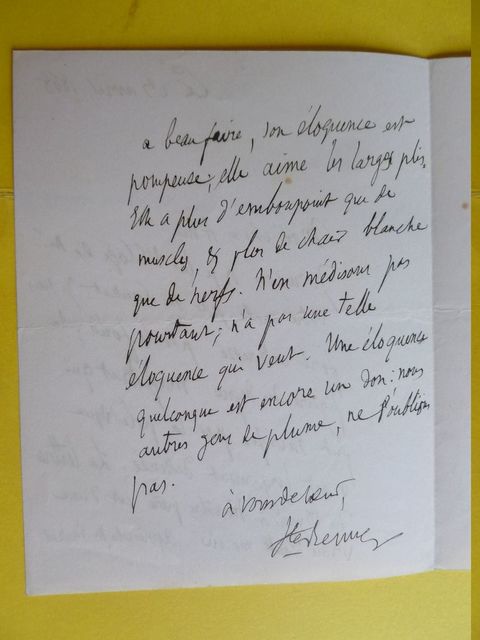 a beau faire, son éloquence est
pompeuse, elle aime les larges plis.
Elle a plus d'embonpoint que de
muscles, & plus de chair blanche
que de nerfs. N'en médisons pas
pourtant; n'a pas une telle
éloquence qui veut. Une éloquence
quelconque est encore un don: nous
autres gens de plume, ne l'oublions
pas.
à vous de cœur,
Ste Beuve